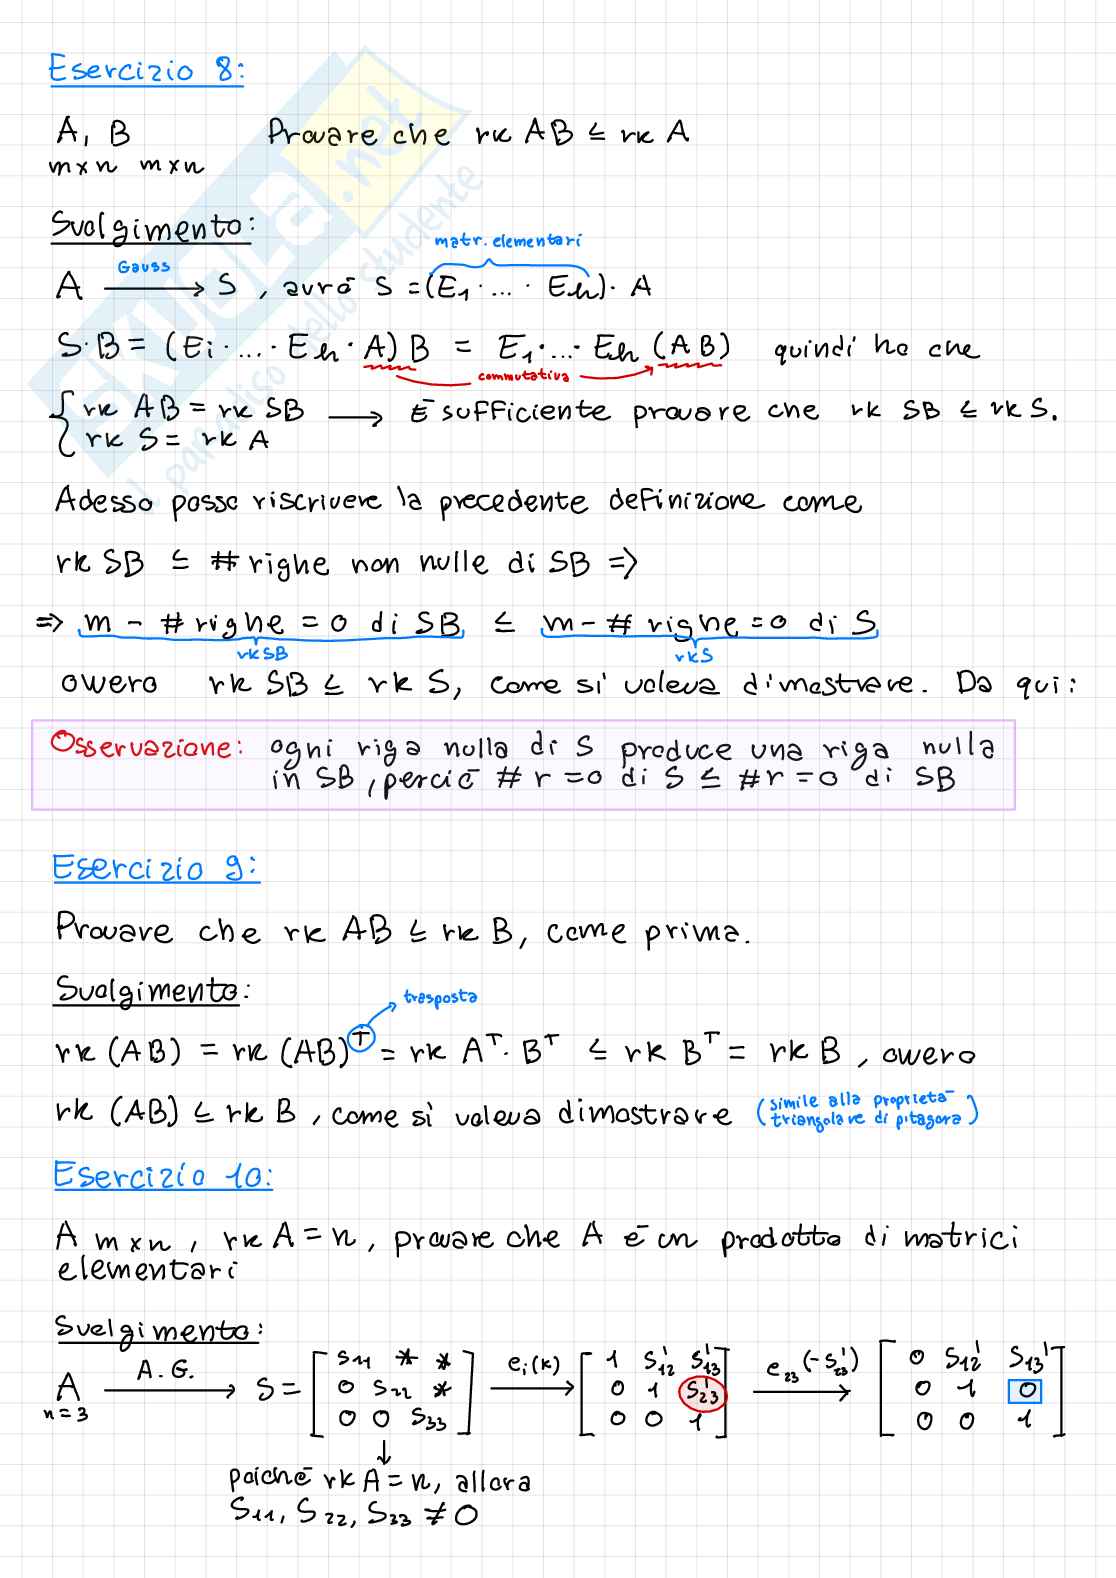 Esercizio 8:
A, B Provare che rk AB ≤ rk A
m×n m×n
Svolgimento:
matr. elementari
A Gauss → S , avrò S = (E₁ · ... · Eₕ) · A
S·B = (Ei · ... · Eₕ · A) B = E₁ · ... · Eₕ (AB) quindi ho che
commutativa
{ rk AB = rk SB → È sufficiente provare che rk SB ≤ rk S.
rk S = rk A
Adesso posso riscrivere la precedente definizione come
rk SB ≤ # righe non nulle di SB =>
=> m - # righe = 0 di SB ≤ m - # righe = 0 di S
rk SB rk S
ovvero rk SB ≤ rk S, come si voleva dimostrare. Da qui:
Osservazione: ogni riga nulla di S produce una riga nulla
in SB, perciò # r = 0 di S ≤ # r = 0 di SB
Esercizio 9:
Provare che rk AB ≤ rk B, come prima.
Svolgimento:
trasposta
rk (AB) = rk (AB)ᵀ = rk Aᵀ · Bᵀ ≤ rk Bᵀ = rk B , ovvero
rk (AB) ≤ rk B , come si voleva dimostrare (simile alla proprietà
triangolare di pitagora)
Esercizio 10:
A m×n , rk A = n , provare che A è un prodotto di matrici
elementari
Svolgimento:
A A.G. → S = [ S₁₁ * * eᵢ(k) → [ 1 S'₁₂ S'₁₃ ] e₂₃(-S'₂₃) → [ 0 S₁₂' S₁₃' ]
n=3 0 S₂₂ * 0 1 S'₂₃ 0 1 0
0 0 S₃₃ ] 0 0 1 0 0 1
↓
poichè rk A = n, allora
S₁₁, S₂₂, S₃₃ ≠ 0
SKUOLA.net
il paradiso dello studente